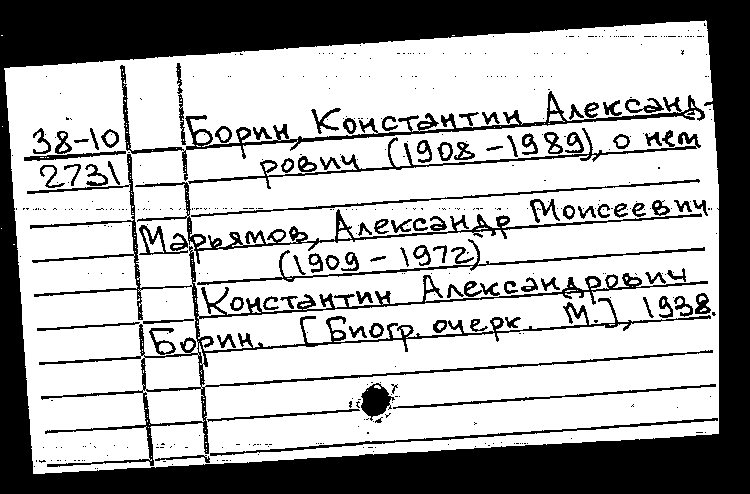 38-10
2731
Борин, Константин Александ-
рович (1908-1989), о нем
Марьямов, Александр Моисеевич
(1909-1972).
Константин Александрович
Борин. [Биогр. очерк. М.], 1938.